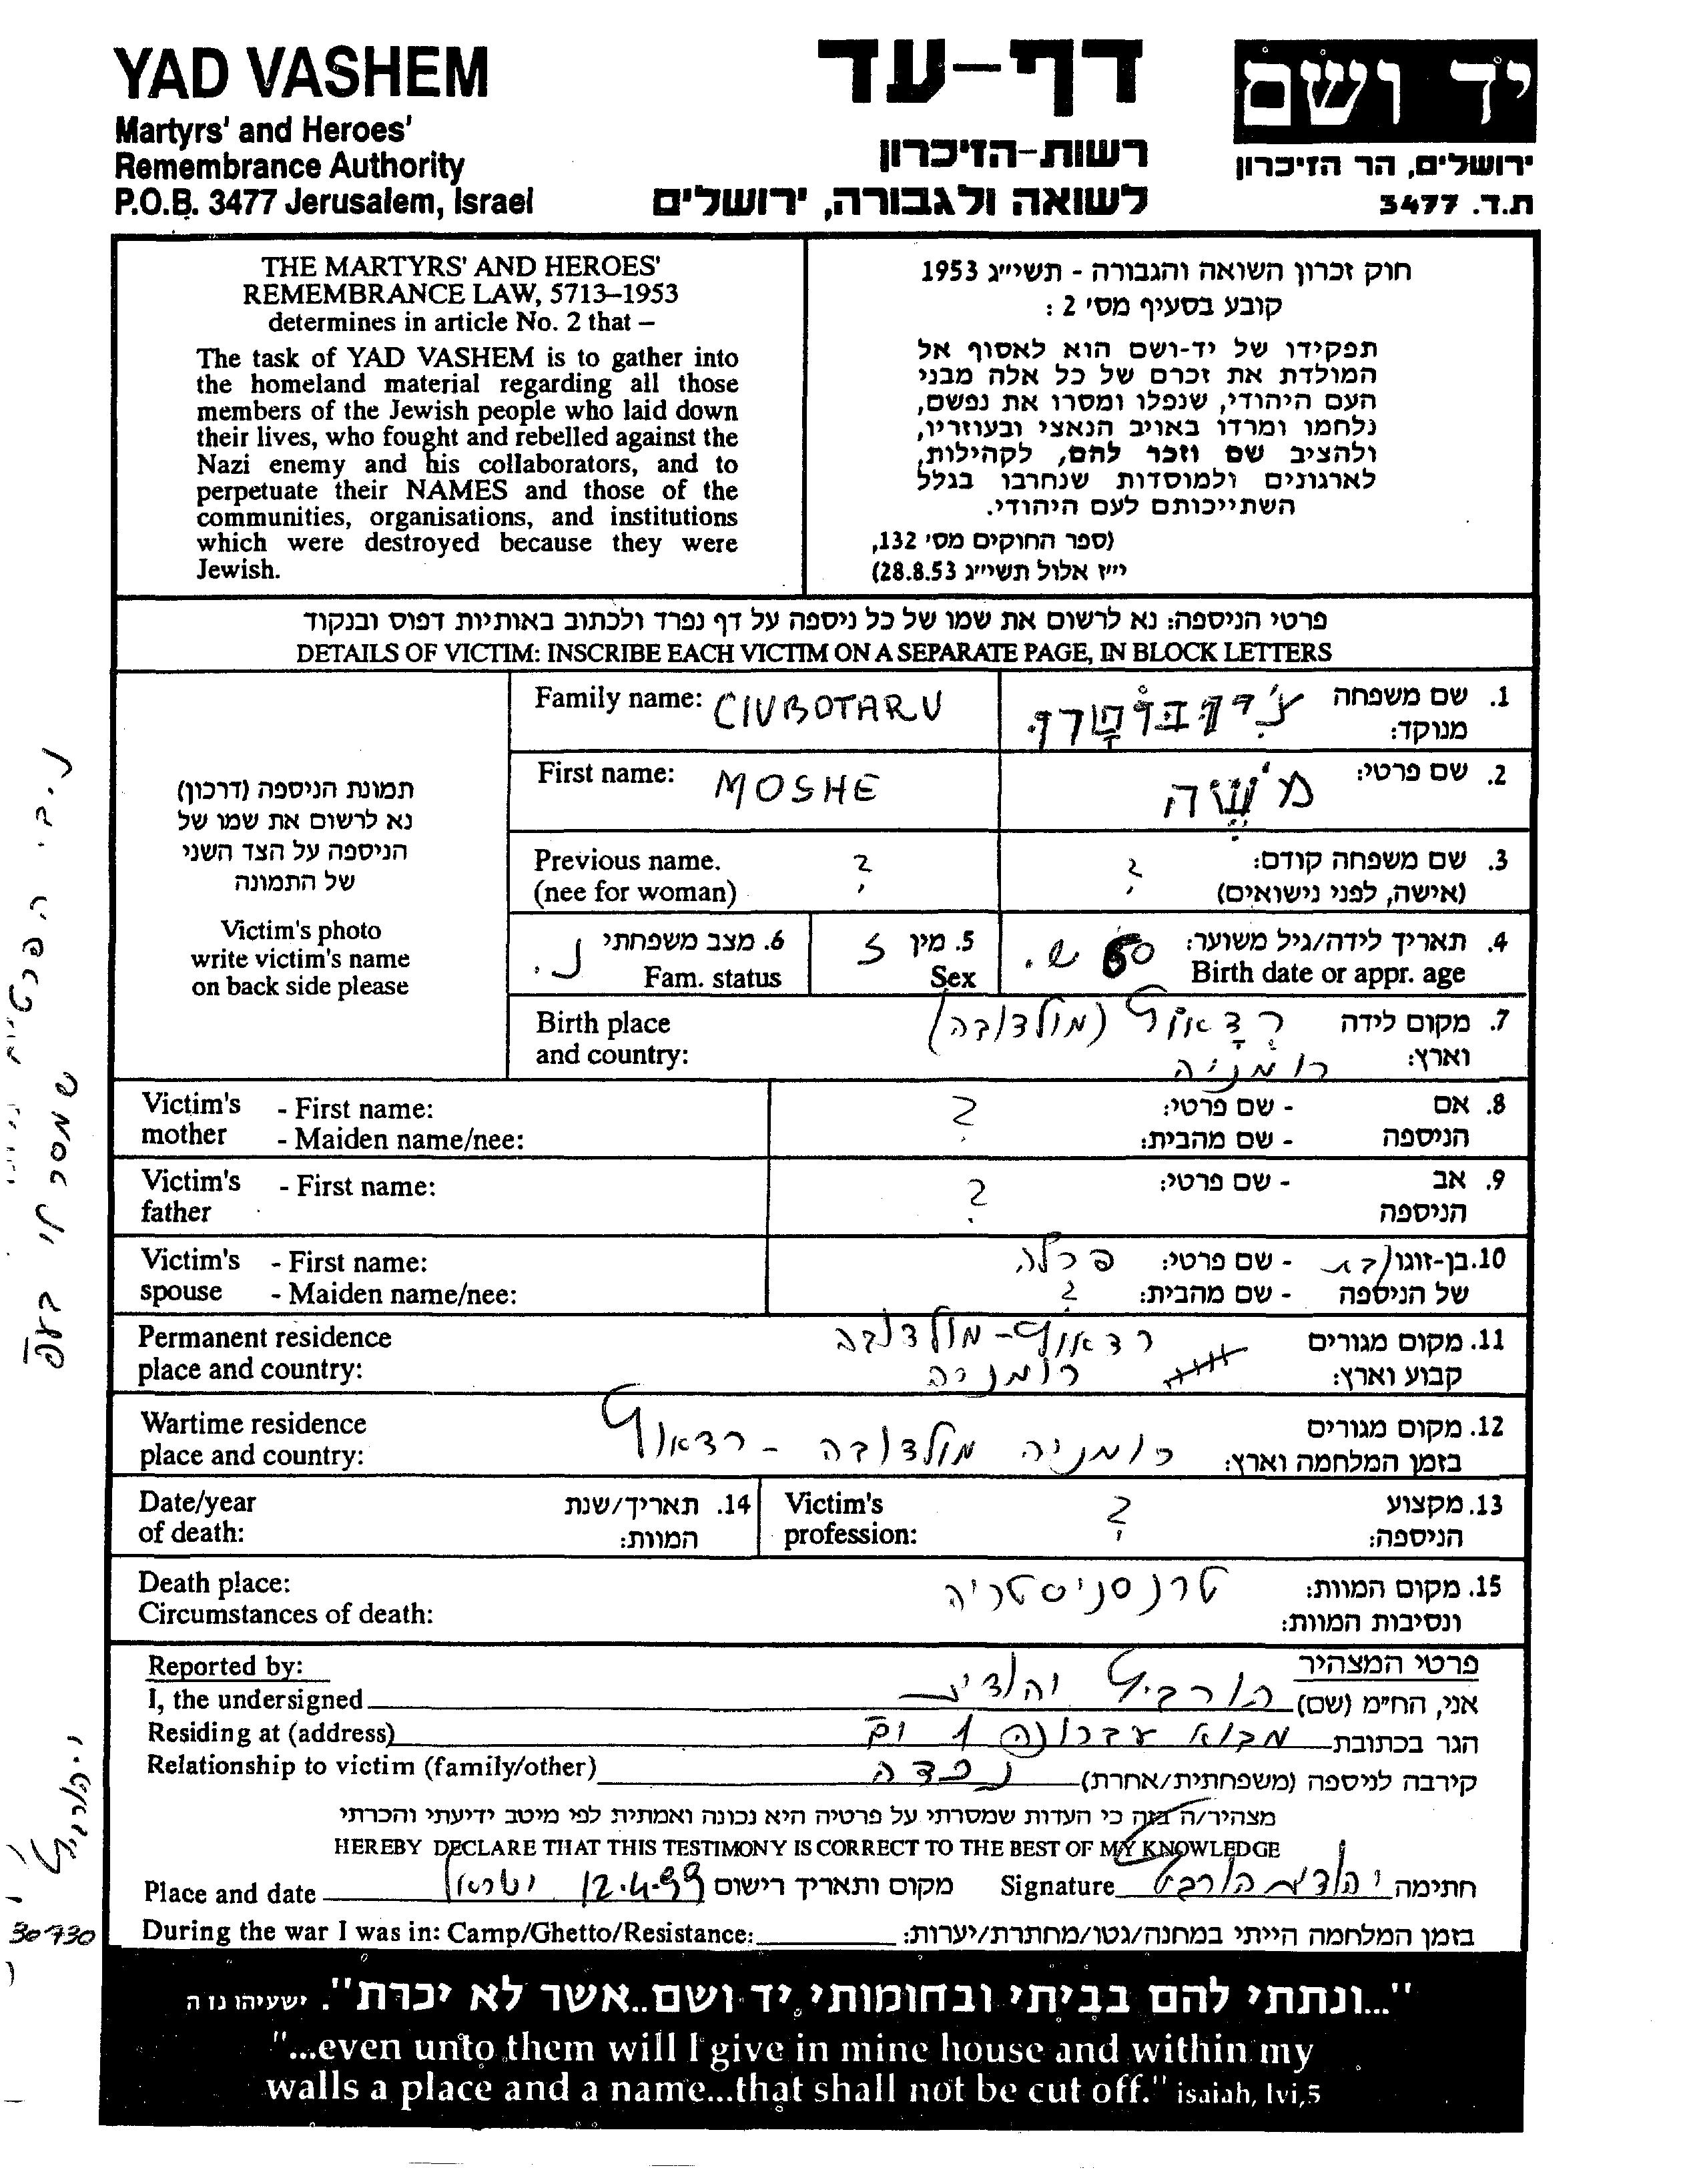 YAD VASHEM
Martyrs' and Heroes'
Remembrance Authority
P.O.B. 3477 Jerusalem, Israel
דף-עד
רשות-הזיכרון
לשואה ולגבורה, ירושלים
יד ושם
ירושלים, הר הזיכרון
ת.ד. 3477
THE MARTYRS' AND HEROES'
REMEMBRANCE LAW, 5713–1953
determines in article No. 2 that –
The task of YAD VASHEM is to gather into
the homeland material regarding all those
members of the Jewish people who laid down
their lives, who fought and rebelled against the
Nazi enemy and his collaborators, and to
perpetuate their NAMES and those of the
communities, organisations, and institutions
which were destroyed because they were
Jewish.
חוק זכרון השואה והגבורה - תשי״ג 1953
קובע בסעיף מס׳ 2 :
תפקידו של יד-ושם הוא לאסוף אל
המולדת את זכרם של כל אלה מבני
העם היהודי, שנפלו ומסרו את נפשם,
נלחמו ומרדו באויב הנאצי ובעוזריו,
ולהציב שם וזכר להם, לקהילות,
לארגונים ולמוסדות שנחרבו בגלל
השתייכותם לעם היהודי.
(ספר החוקים מס׳ 132,
י״ז אלול תשי״ג 28.8.53)
פרטי הניספה: נא לרשום את שמו של כל ניספה על דף נפרד ולכתוב באותיות דפוס ובנקוד
DETAILS OF VICTIM: INSCRIBE EACH VICTIM ON A SEPARATE PAGE, IN BLOCK LETTERS
תמונת הניספה (דרכון)
נא לרשום את שמו של
הניספה על הצד השני
של התמונה
Victim's photo
write victim's name
on back side please
Family name: CIUBOTARU
1. שם משפחה
מנוקד: צ'יובוטרו
First name: MOSHE
2. שם פרטי: משה
Previous name. ?
(nee for woman)
3. שם משפחה קודם: ?
(אישה, לפני נישואים)
4. תאריך לידה/גיל משוער: 60 ש.
Birth date or appr. age
5. מין ז
Sex
6. מצב משפחתי נ.
Fam. status
Birth place
and country:
7. מקום לידה רדאוץ (מולדובה)
וארץ: רומניה
Victim's - First name:
mother - Maiden name/nee:
8. אם - שם פרטי: ?
הניספה - שם מהבית:
Victim's - First name:
father
9. אב - שם פרטי: ?
הניספה
Victim's - First name:
spouse - Maiden name/nee:
10. בן-זוגו/בת - שם פרטי: פרלה
של הניספה - שם מהבית: ?
Permanent residence
place and country:
11. מקום מגורים רדאוץ - מולדובה
קבוע וארץ: רומניה
Wartime residence
place and country:
12. מקום מגורים
בזמן המלחמה וארץ: רומניה מולדובה - רדאוץ
Date/year
of death:
14. תאריך/שנת
המוות:
Victim's
profession:
13. מקצוע ?
הניספה:
Death place:
Circumstances of death:
15. מקום המוות: טרנסניסטריה
ונסיבות המוות:
Reported by:
פרטי המצהיר
I, the undersigned
אני, הח״מ (שם) הורביץ יהודית
Residing at (address)
הגר בכתובת מבוא עברונה 1 ים
Relationship to victim (family/other)
קירבה לניספה (משפחתית/אחרת) נכדה
מצהיר/ה בזה כי העדות שמסרתי על פרטיה היא נכונה ואמתית לפי מיטב ידיעתי והכרתי
HEREBY DECLARE THAT THIS TESTIMONY IS CORRECT TO THE BEST OF MY KNOWLEDGE
Place and date
מקום ותאריך רישום 12.4.99 ישראל
Signature
חתימה יהודית הורביץ
During the war I was in: Camp/Ghetto/Resistance:
בזמן המלחמה הייתי במחנה/גטו/מחתרת/יערות:
30730
"...ונתתי להם בביתי ובחומותי יד ושם..אשר לא יכרת". ישעיהו נו ה
"...even unto them will I give in mine house and within my
walls a place and a name...that shall not be cut off." isaiah, lvi,5